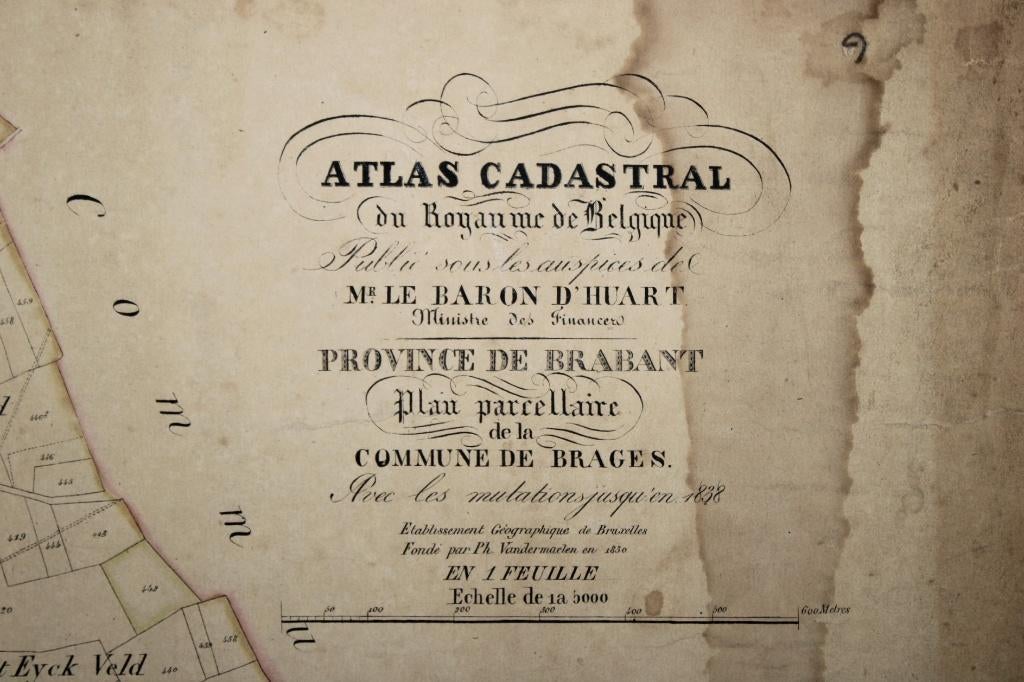 ATLAS CADASTRAL
du Royaume de Belgique
Publié sous les auspices de
MR LE BARON D'HUART
Ministre des Finances
PROVINCE DE BRABANT
Plan parcellaire
de la
COMMUNE DE BRAGES.
Avec les mutations jusqu'en 1838
Etablissement Géographique de Bruxelles
Fondé par Ph. Vandermaelen en 1830
EN 1 FEUILLE
Echelle de 1 a 5000
50 100 200 300 400 500 600 Metres
C o m m u
459
458
446
445
419
444
442
20
t Eyck Veld
440